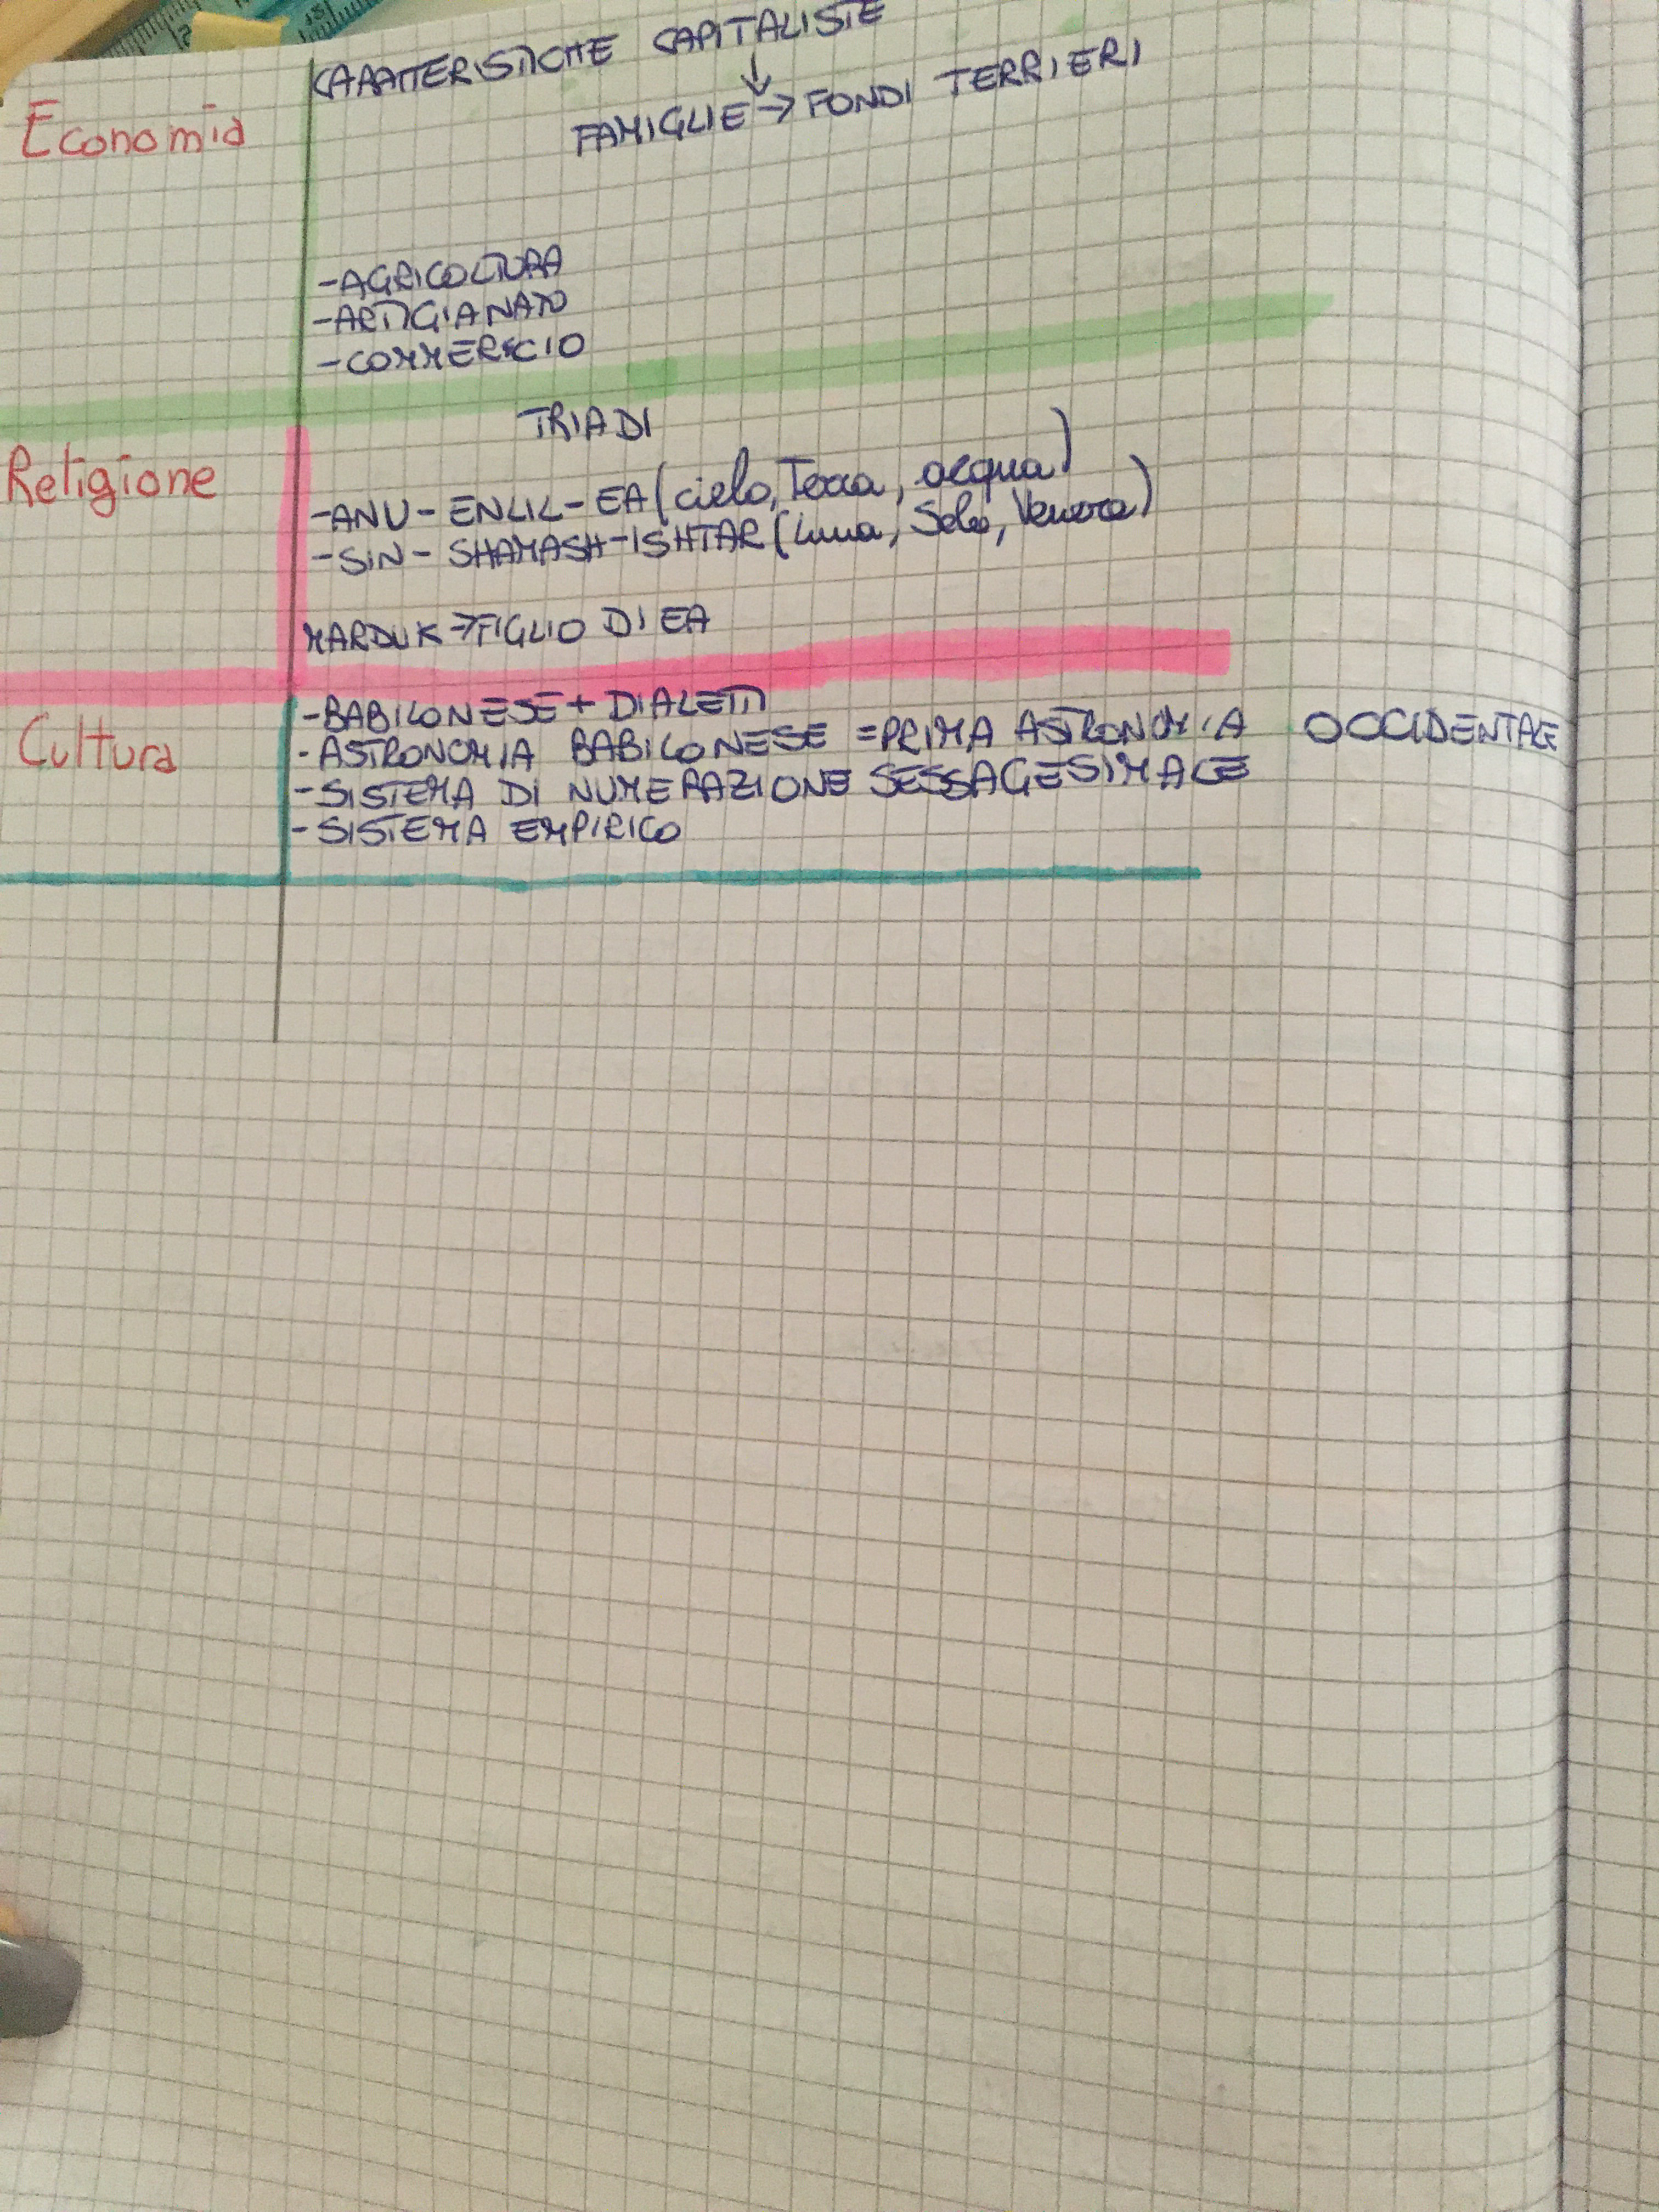 Economia
CARATTERISTICHE CAPITALISTE
↓
FAMIGLIE → FONDI TERRIERI
-AGRICOLTURA
-ARTIGIANATO
-COMMERCIO
Religione
TRIADI
-ANU - ENLIL - EA (cielo, Terra, acqua)
-SIN - SHAMASH - ISHTAR (Luna, Sole, Venere)
MARDUK → FIGLIO DI EA
Cultura
-BABILONESE + DIALETTI
-ASTRONOMIA BABILONESE = PRIMA ASTRONOMIA OCCIDENTALE
-SISTEMA DI NUMERAZIONE SESSAGESIMALE
-SISTEMA EMPIRICO